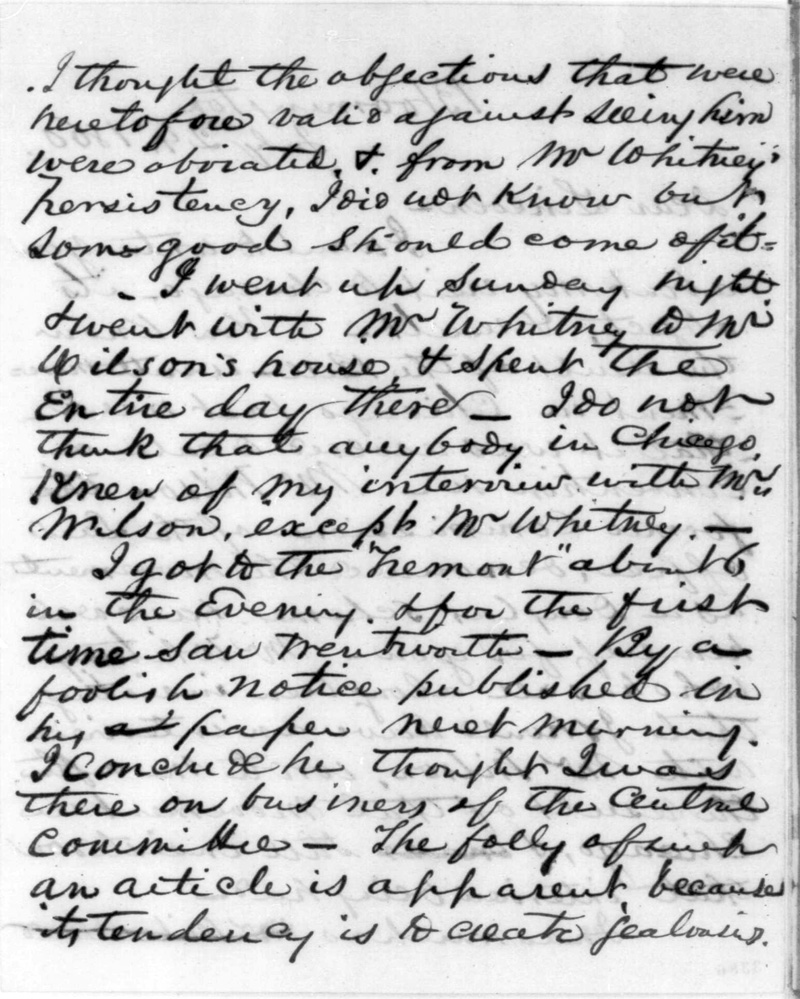 I thought the objections that were
heretofore valid against seeing him
were obviated, & from Mr Whitney's
persistency, I did not know but
some good should come of it =
- I went up Sunday night
& went with Mr Whitney to Mr
Wilson's house, & spent the
Entire day there — I do not
think that anybody in Chicago,
Knew of my interview with Mr
Wilson, except Mr Whitney. —
I got to the "Tremont" about 6
in the Evening. & for the first
time saw Wentworth — By a
foolish notice published in
his paper next morning.
I conclude he thought I was
there on business of the Central
Committee — The folly of such
an article is apparent, because
its tendency is to create jealousies.